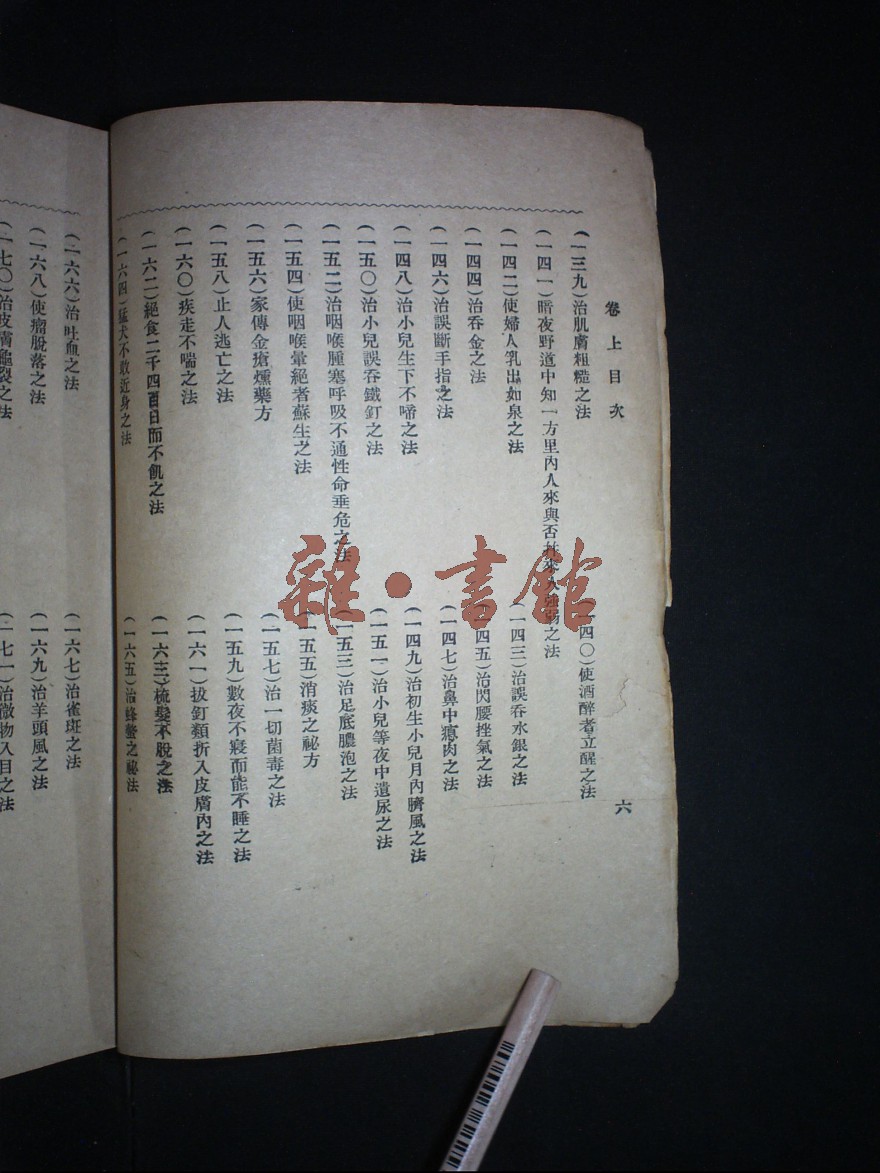 卷上目次
六
(一三九)治肌膚粗糙之法
(一四〇)使酒醉者立醒之法
(一四一)暗夜野道中知一方里內人來與否并來人強弱之法
(一四二)使婦人乳出如泉之法
(一四三)治誤吞水銀之法
(一四四)治吞金之法
(一四五)治閃腰挫氣之法
(一四六)治誤斷手指之法
(一四七)治鼻中瘜肉之法
(一四八)治小兒生下不啼之法
(一四九)治初生小兒月內臍風之法
(一五〇)治小兒誤吞鐵釘之法
(一五一)治小兒等夜中遺尿之法
(一五二)治咽喉腫塞呼吸不通性命垂危之法
(一五三)治足底膿泡之法
(一五四)使咽喉暈絕者蘇生之法
(一五五)消痰之祕方
(一五六)家傳金瘡燻藥方
(一五七)治一切菌毒之法
(一五八)止人逃亡之法
(一五九)數夜不寢而能不睡之法
(一六〇)疾走不喘之法
(一六一)拔釘類折入皮膚內之法
(一六二)絕食二千四百日而不飢之法
(一六三)梳髮不脫之法
(一六四)猛犬不敢近身之法
(一六五)治蜂螫之祕法
(一六六)治吐血之法
(一六七)治雀斑之法
(一六八)使瘤脫落之法
(一六九)治羊頭風之法
(一七〇)治皮膚龜裂之法
(一七一)治微物入目之法
雜·書館